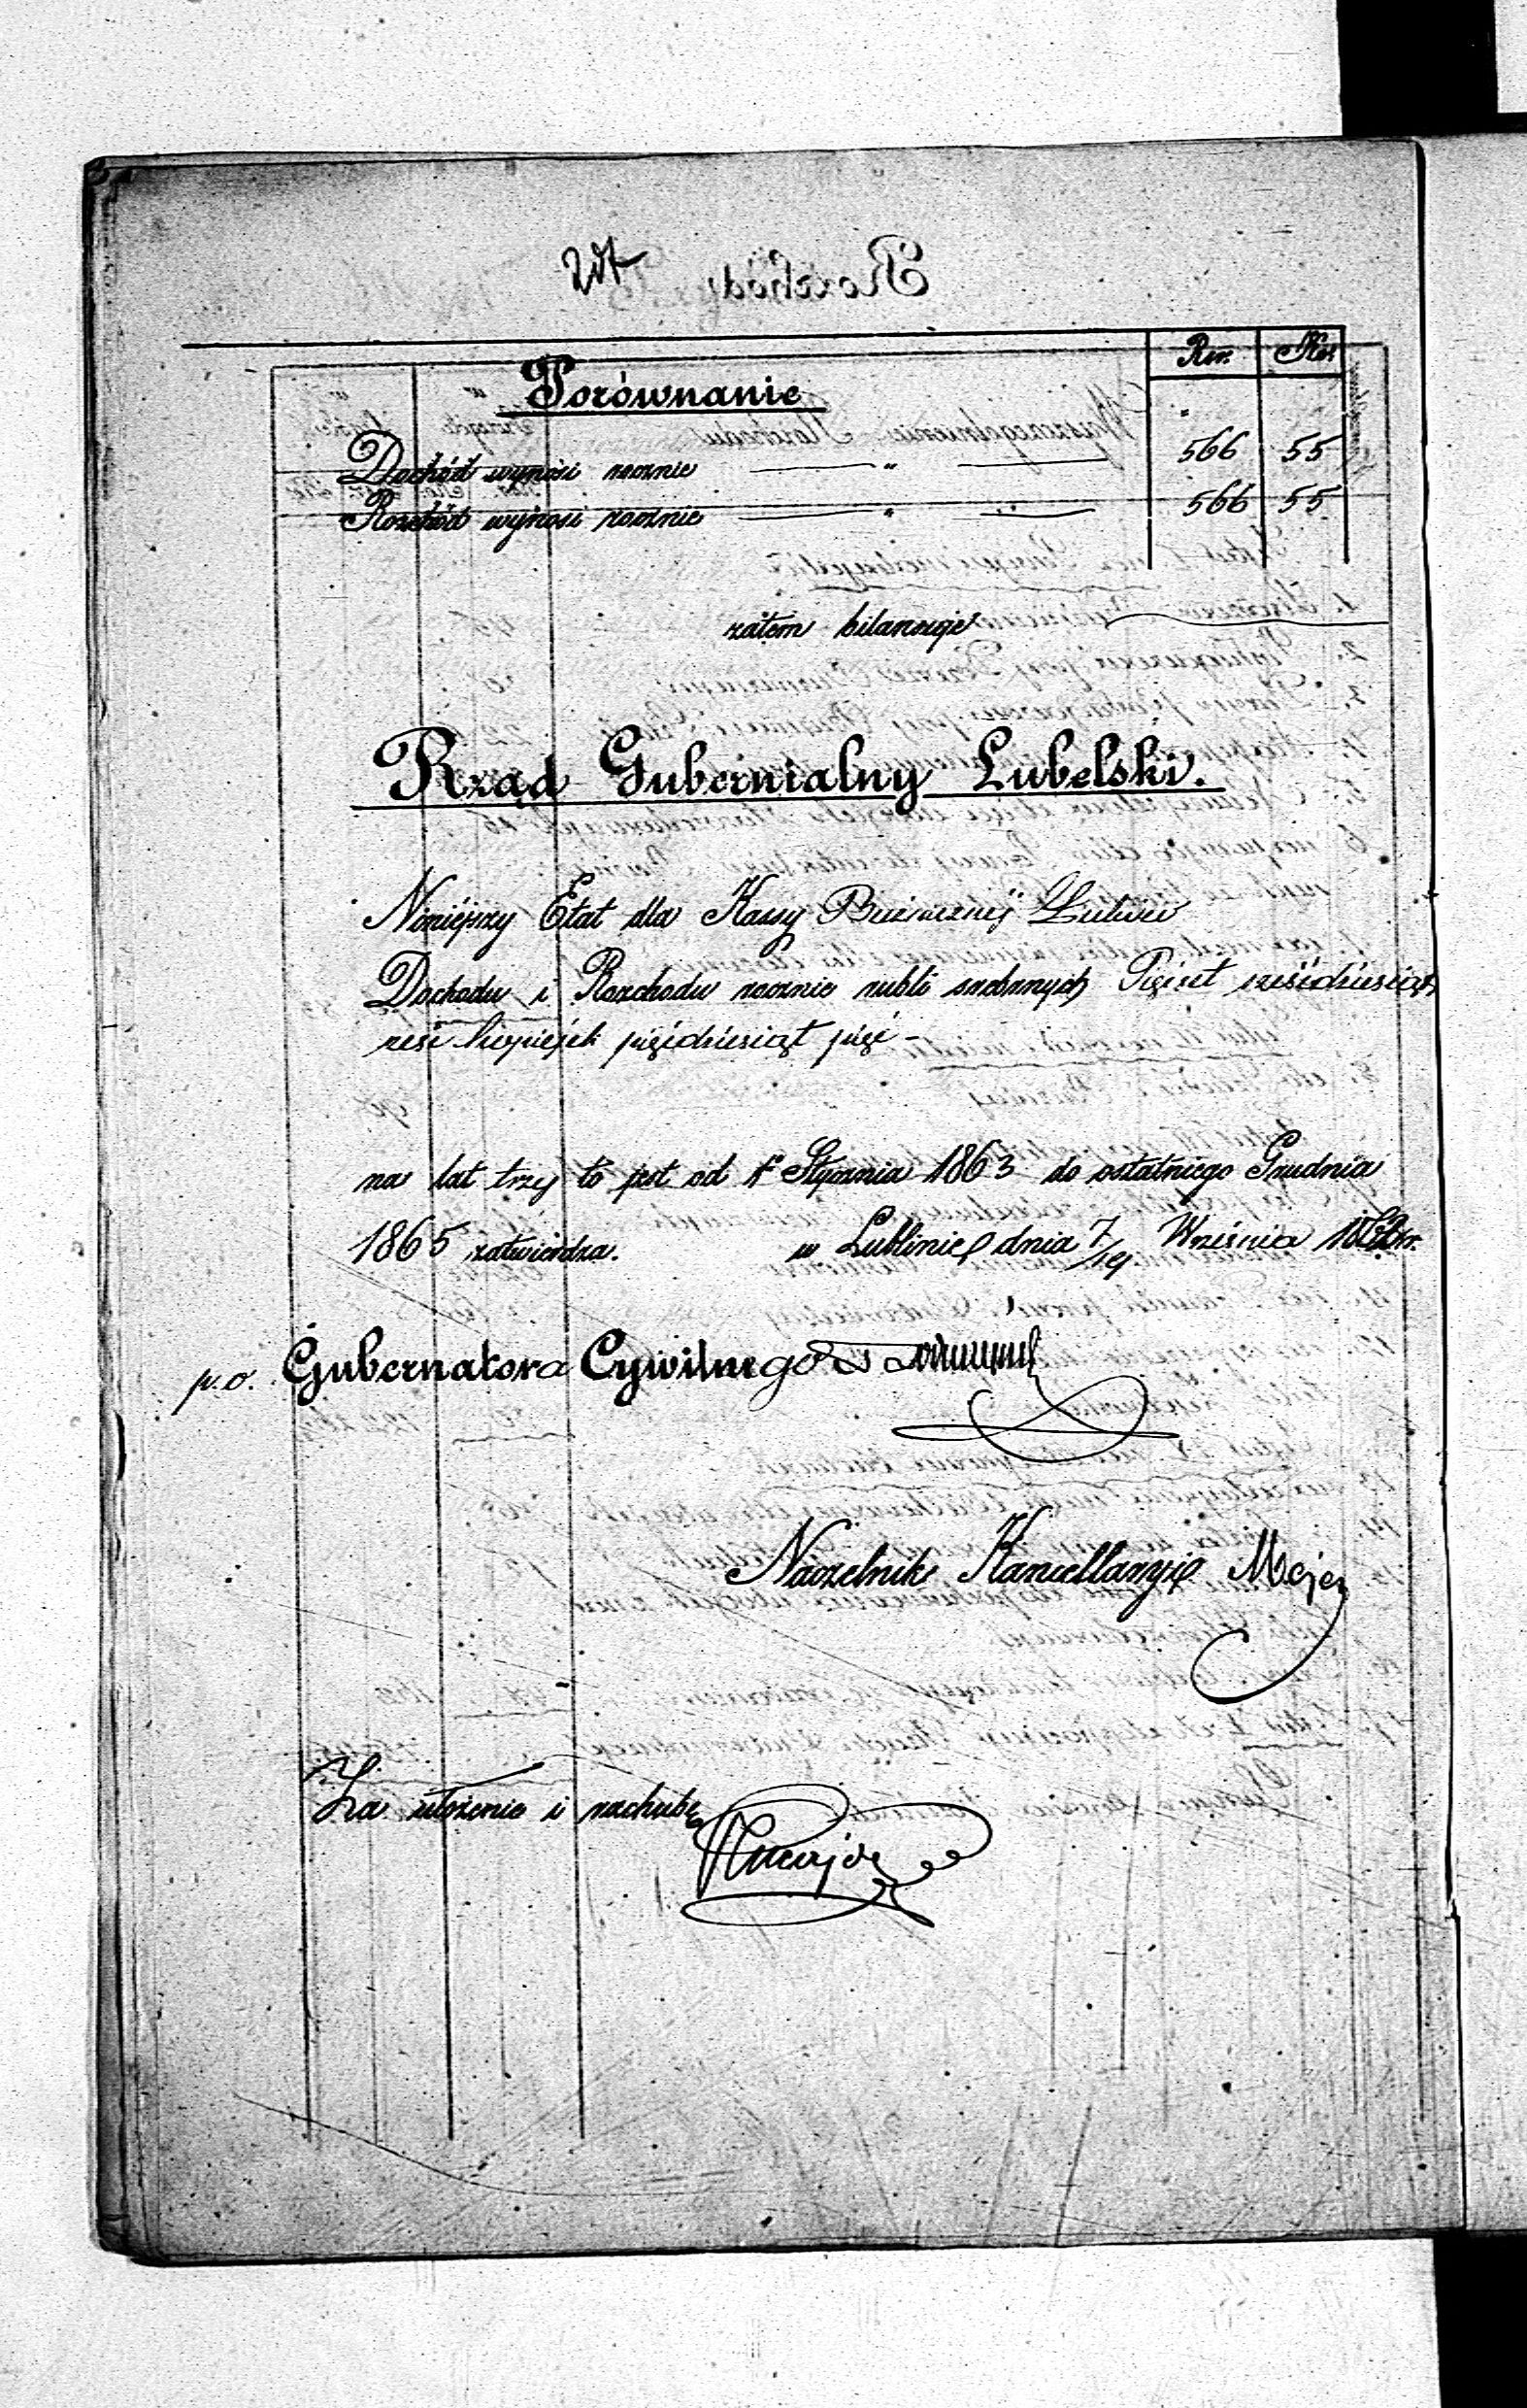 Rsr. Ko.
Porównanie
Dochód wynosi rocznie — " — 566 55
Rozchód wynosi rocznie — " — 566 55
zatem bilansuje
Rząd Gubernialny Lubelski.
Niniéjszy Etat dla Kassy Bużniczéj
Dochodu i Rozchodu rocznie rubli srebrnych Pięćset sześćdziesiąt
sześć kopiejek pięćdziesiąt pięć –
na lat trzy to jest od 1º Stycznia 1863 do ostatniego Grudnia
1865 zatwierdza. w Lublinie dnia 7/19 Września 1862 r.
p.o. Gubernatora Cywilnego
Naczelnik Kancellaryi
Za ułożenie i rachubę